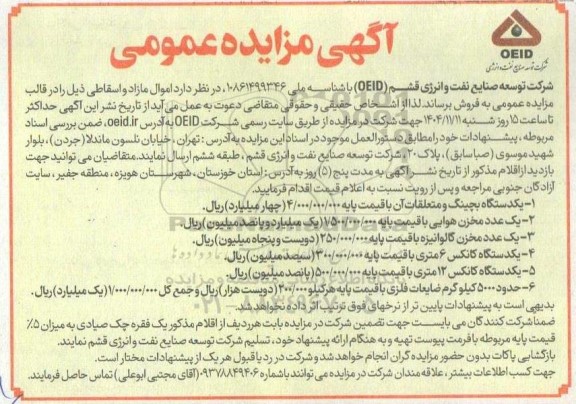 آگهی مزایده عمومی
OEID
شرکت توسعه صنایع نفت و انرژی
شرکت توسعه صنایع نفت و انرژی قشم (OEID) با شناسه ملی ۱۰۸۶۱۴۹۹۳۴۶، در نظر دارد اموال مازاد و اسقاطی ذیل را در قالب
مزایده عمومی به فروش برساند. لذا از اشخاص حقیقی و حقوقی متقاضی دعوت به عمل می‌آید از تاریخ نشر این آگهی حداکثر
تا ساعت ۱۵ روز شنبه ۱۴۰۴/۱۱/۱۱ جهت شرکت در مزایده از طریق سایت رسمی شرکت OEID به آدرس oeid.ir، ضمن بررسی اسناد
مربوطه، پیشنهادات خود را مطابق دستورالعمل موجود در اسناد این مزایده به آدرس: تهران، خیابان نلسون ماندلا (جردن)، بلوار
شهید موسوی (صبا سابق)، پلاک ۲۰، شرکت توسعه صنایع نفت و انرژی قشم، طبقه ششم ارسال نمایند. متقاضیان می توانند جهت
بازدید از اقلام مذکور از تاریخ نشر آگهی به مدت پنج (۵) روز به آدرس: استان خوزستان، شهرستان هویزه، منطقه جفیر، سایت
آزادگان جنوبی مراجعه و پس از رویت نسبت به اعلام قیمت اقدام فرمایید.
۱- یکدستگاه بچینگ و متعلقات آن با قیمت پایه ۴/۰۰۰/۰۰۰/۰۰۰ (چهار میلیارد) ریال.
۲- یک عدد مخزن هوایی با قیمت پایه ۱/۵۰۰/۰۰۰/۰۰۰ (یک میلیارد و پانصد میلیون) ریال.
۳- یک عدد مخزن گالوانیزه با قیمت پایه ۲۵۰/۰۰۰/۰۰۰ (دویست و پنجاه میلیون) ریال.
۴- یکدستگاه کانکس ۶ متری با قیمت پایه ۳۰۰/۰۰۰/۰۰۰ (سیصد میلیون) ریال.
۵- یکدستگاه کانکس ۱۲ متری با قیمت پایه ۵۰۰/۰۰۰/۰۰۰ (پانصد میلیون) ریال.
۶- حدود ۵۰۰۰ کیلو گرم ضایعات فلزی با قیمت پایه هر کیلو ۲۰۰/۰۰۰ (دویست هزار) ریال و جمع کل ۱/۰۰۰/۰۰۰/۰۰۰ (یک میلیارد) ریال.
بدیهی است به پیشنهادات پایین تر از نرخهای فوق ترتیب اثر داده نخواهد شد.
ضمنا شرکت کنندگان می بایست جهت تضمین شرکت در مزایده بابت هر ردیف از اقلام مذکور یک فقره چک صیادی به میزان ۵٪
قیمت پایه مربوطه با فرمت پیوست تهیه و به هنگام ارائه پیشنهاد خود، تسلیم شرکت توسعه صنایع نفت و انرژی قشم نمایند.
بازگشایی پاکات بدون حضور مزایده گران انجام خواهد شد و شرکت در رد یا قبول هر یک از پیشنهادات مختار است.
جهت کسب اطلاعات بیشتر، علاقه مندان شرکت در مزایده می توانند با شماره ۰۹۳۷۸۸۴۹۴۰۶ (آقای مجتبی ابوعلی) تماس حاصل فرمایند.